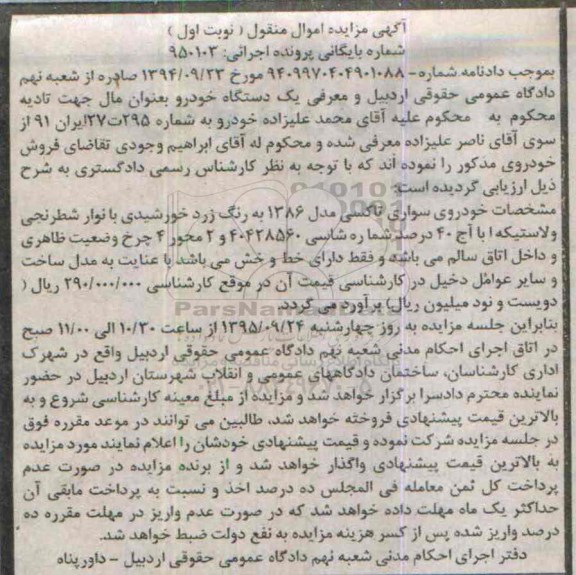 آگهی مزایده اموال منقول ( نوبت اول )
شماره بایگانی پرونده اجرائی: ۹۵۰۱۰۳
بموجب دادنامه شماره- ۹۴۰۹۹۷۰۴۰۴۹۰۱۰۸۸ مورخ ۱۳۹۴/۰۹/۲۳ صادره از شعبه نهم
دادگاه عمومی حقوقی اردبیل و معرفی یک دستگاه خودرو بعنوان مال جهت تادیه
محکوم به محکوم علیه آقای محمد علیزاده خودرو به شماره ۲۹۵ت۲۷ایران ۹۱ از
سوی آقای ناصر علیزاده معرفی شده و محکوم له آقای ابراهیم وجودی تقاضای فروش
خودروی مذکور را نموده اند که با توجه به نظر کارشناس رسمی دادگستری به شرح
ذیل ارزیابی گردیده است:
مشخصات خودروی سواری تاکسی مدل ۱۳۸۶ به رنگ زرد خورشیدی با نوار شطرنجی
ولاستیکه ا با آج ۴۰ درصد شما ره شاسی ۴۰۴۲۸۵۶۰ و ۲ محور ۴ چرخ وضعیت ظاهری
و داخل اتاق سالم می باشد و فقط دارای خط و خش می باشد با عنایت به مدل ساخت
و سایر عوامل دخیل در کارشناسی قیمت آن در موقع کارشناسی ۲۹۰/۰۰۰/۰۰۰ ریال (
دویست و نود میلیون ریال) بر آورد می گردد.
بنابراین جلسه مزایده به روز چهارشنبه ۱۳۹۵/۰۹/۲۴ از ساعت ۱۰/۳۰ الی ۱۱/۰۰ صبح
در اتاق اجرای احکام مدنی شعبه نهم دادگاه عمومی حقوقی اردبیل واقع در شهرک
اداری کارشناسان، ساختمان دادگاههای عمومی و انقلاب شهرستان اردبیل در حضور
نماینده محترم دادسرا برگزار خواهد شد و مزایده از مبلغ معینه کارشناسی شروع و به
بالاترین قیمت پیشنهادی فروخته خواهد شد، طالبین می توانند در موعد مقرره فوق
در جلسه مزایده شرکت نموده و قیمت پیشنهادی خودشان را اعلام نمایند مورد مزایده
به بالاترین قیمت پیشنهادی واگذار خواهد شد و از برنده مزایده در صورت عدم
پرداخت کل ثمن معامله فی المجلس ده درصد اخذ و نسبت به پرداخت مابقی آن
حداکثر یک ماه مهلت داده خواهد شد که در صورت عدم واریز در مهلت مقرره ده
درصد واریز شده پس از کسر هزینه مزایده به نفع دولت ضبط خواهد شد.
دفتر اجرای احکام مدنی شعبه نهم دادگاه عمومی حقوقی اردبیل - داورپناه